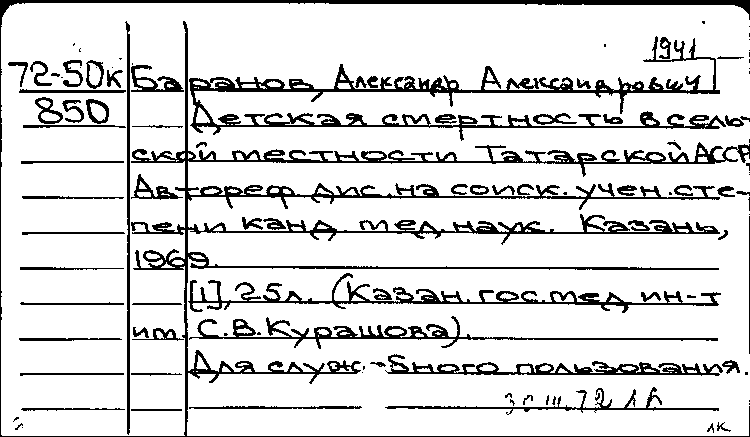 1941
72-50к Баранов, Александр Александрович
850 Детская смертность в сель-
ской местности Татарской АССР
Автореф. дис. на соиск. учен. сте-
пени канд. мед. наук. Казань,
1969.
[1], 25л. (Казан. гос. мед. ин-т
им. С.В. Курашова).
Для служ-бного пользования.
30.III.72 1 К
лк